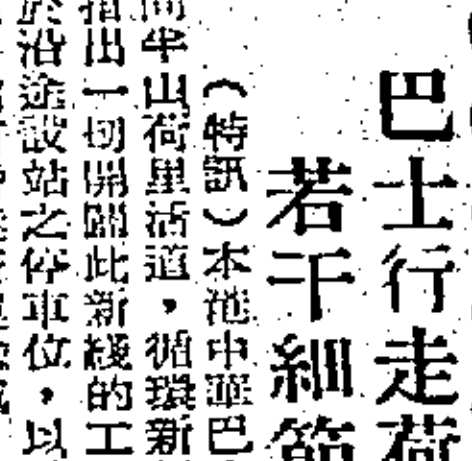 巴士行走荷
若干細節
（特訊）本港中華巴
半山荷里活道，循環新
指出一切開闢此新綫的工
於沿途設站之停車位，以